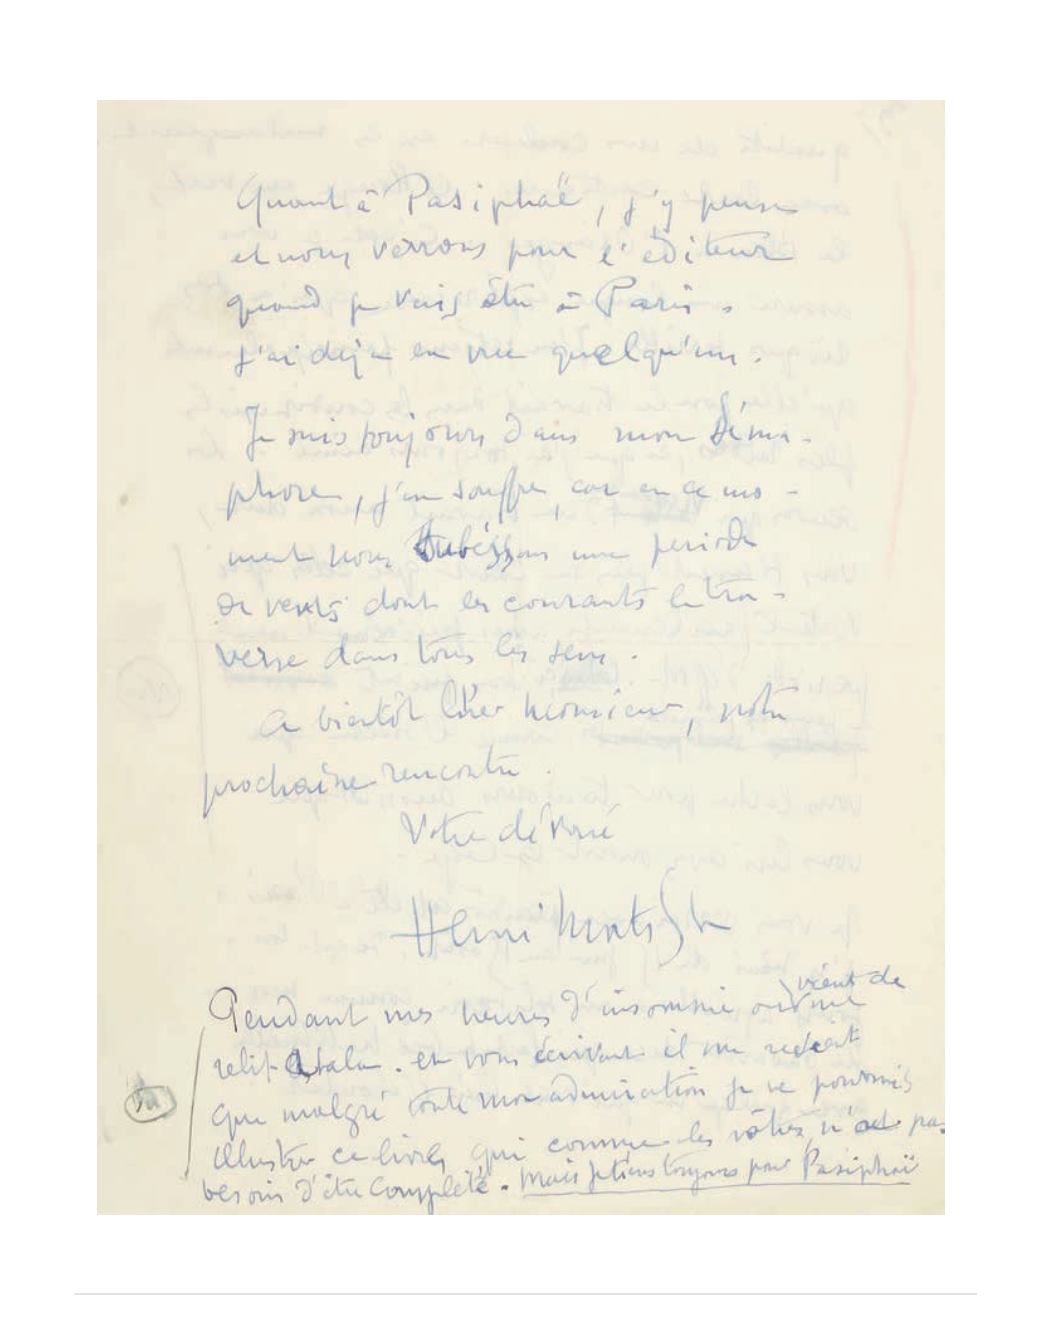 Quant à Pasiphaë, j'y pense
et nous verrons pour l'éditeur
quand je vais être à Paris.
j'ai déjà en vue quelqu'un.
Je suis toujours dans mon Séma-
phore, j'en souffre, car en ce mo-
ment nous subissons une période
de vents dont les courants le tra-
verse dans tous les sens.
A bientôt cher Monsieur, notre
prochaine rencontre.
Votre dévoué
Henri Matisse
vient de
Pendant mes heures d'insomnie on me
relit Atala. en vous écrivant il me
que malgré toute mon admiration je ne pourrais
illustrer ce livre qui comme les vôtres n'ont pas
besoin d'être complété. Mais je tiens toujours pour Pasiphaë